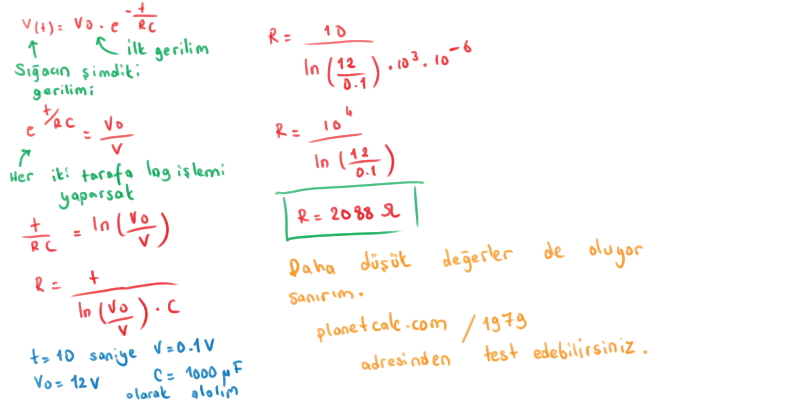 V(t) = V0 . e^(-t/RC)
ilk gerilim
Sığacın şimdiki
gerilimi
e^(t/RC) = V0/V
Her iki tarafa log işlemi
yaparsak
t/RC = ln(V0/V)
R = t / ln(V0/V) . C
t = 10 saniye V = 0.1V
V0 = 12V C = 1000 µF
olarak alalım
R = 10 / ln(12/0.1) . 10^3 . 10^-6
R = 10^4 / ln(12/0.1)
R = 2088 Ω
Daha düşük değerler de oluyor
sanırım.
planetcalc.com / 1979
adresinden test edebilirsiniz.